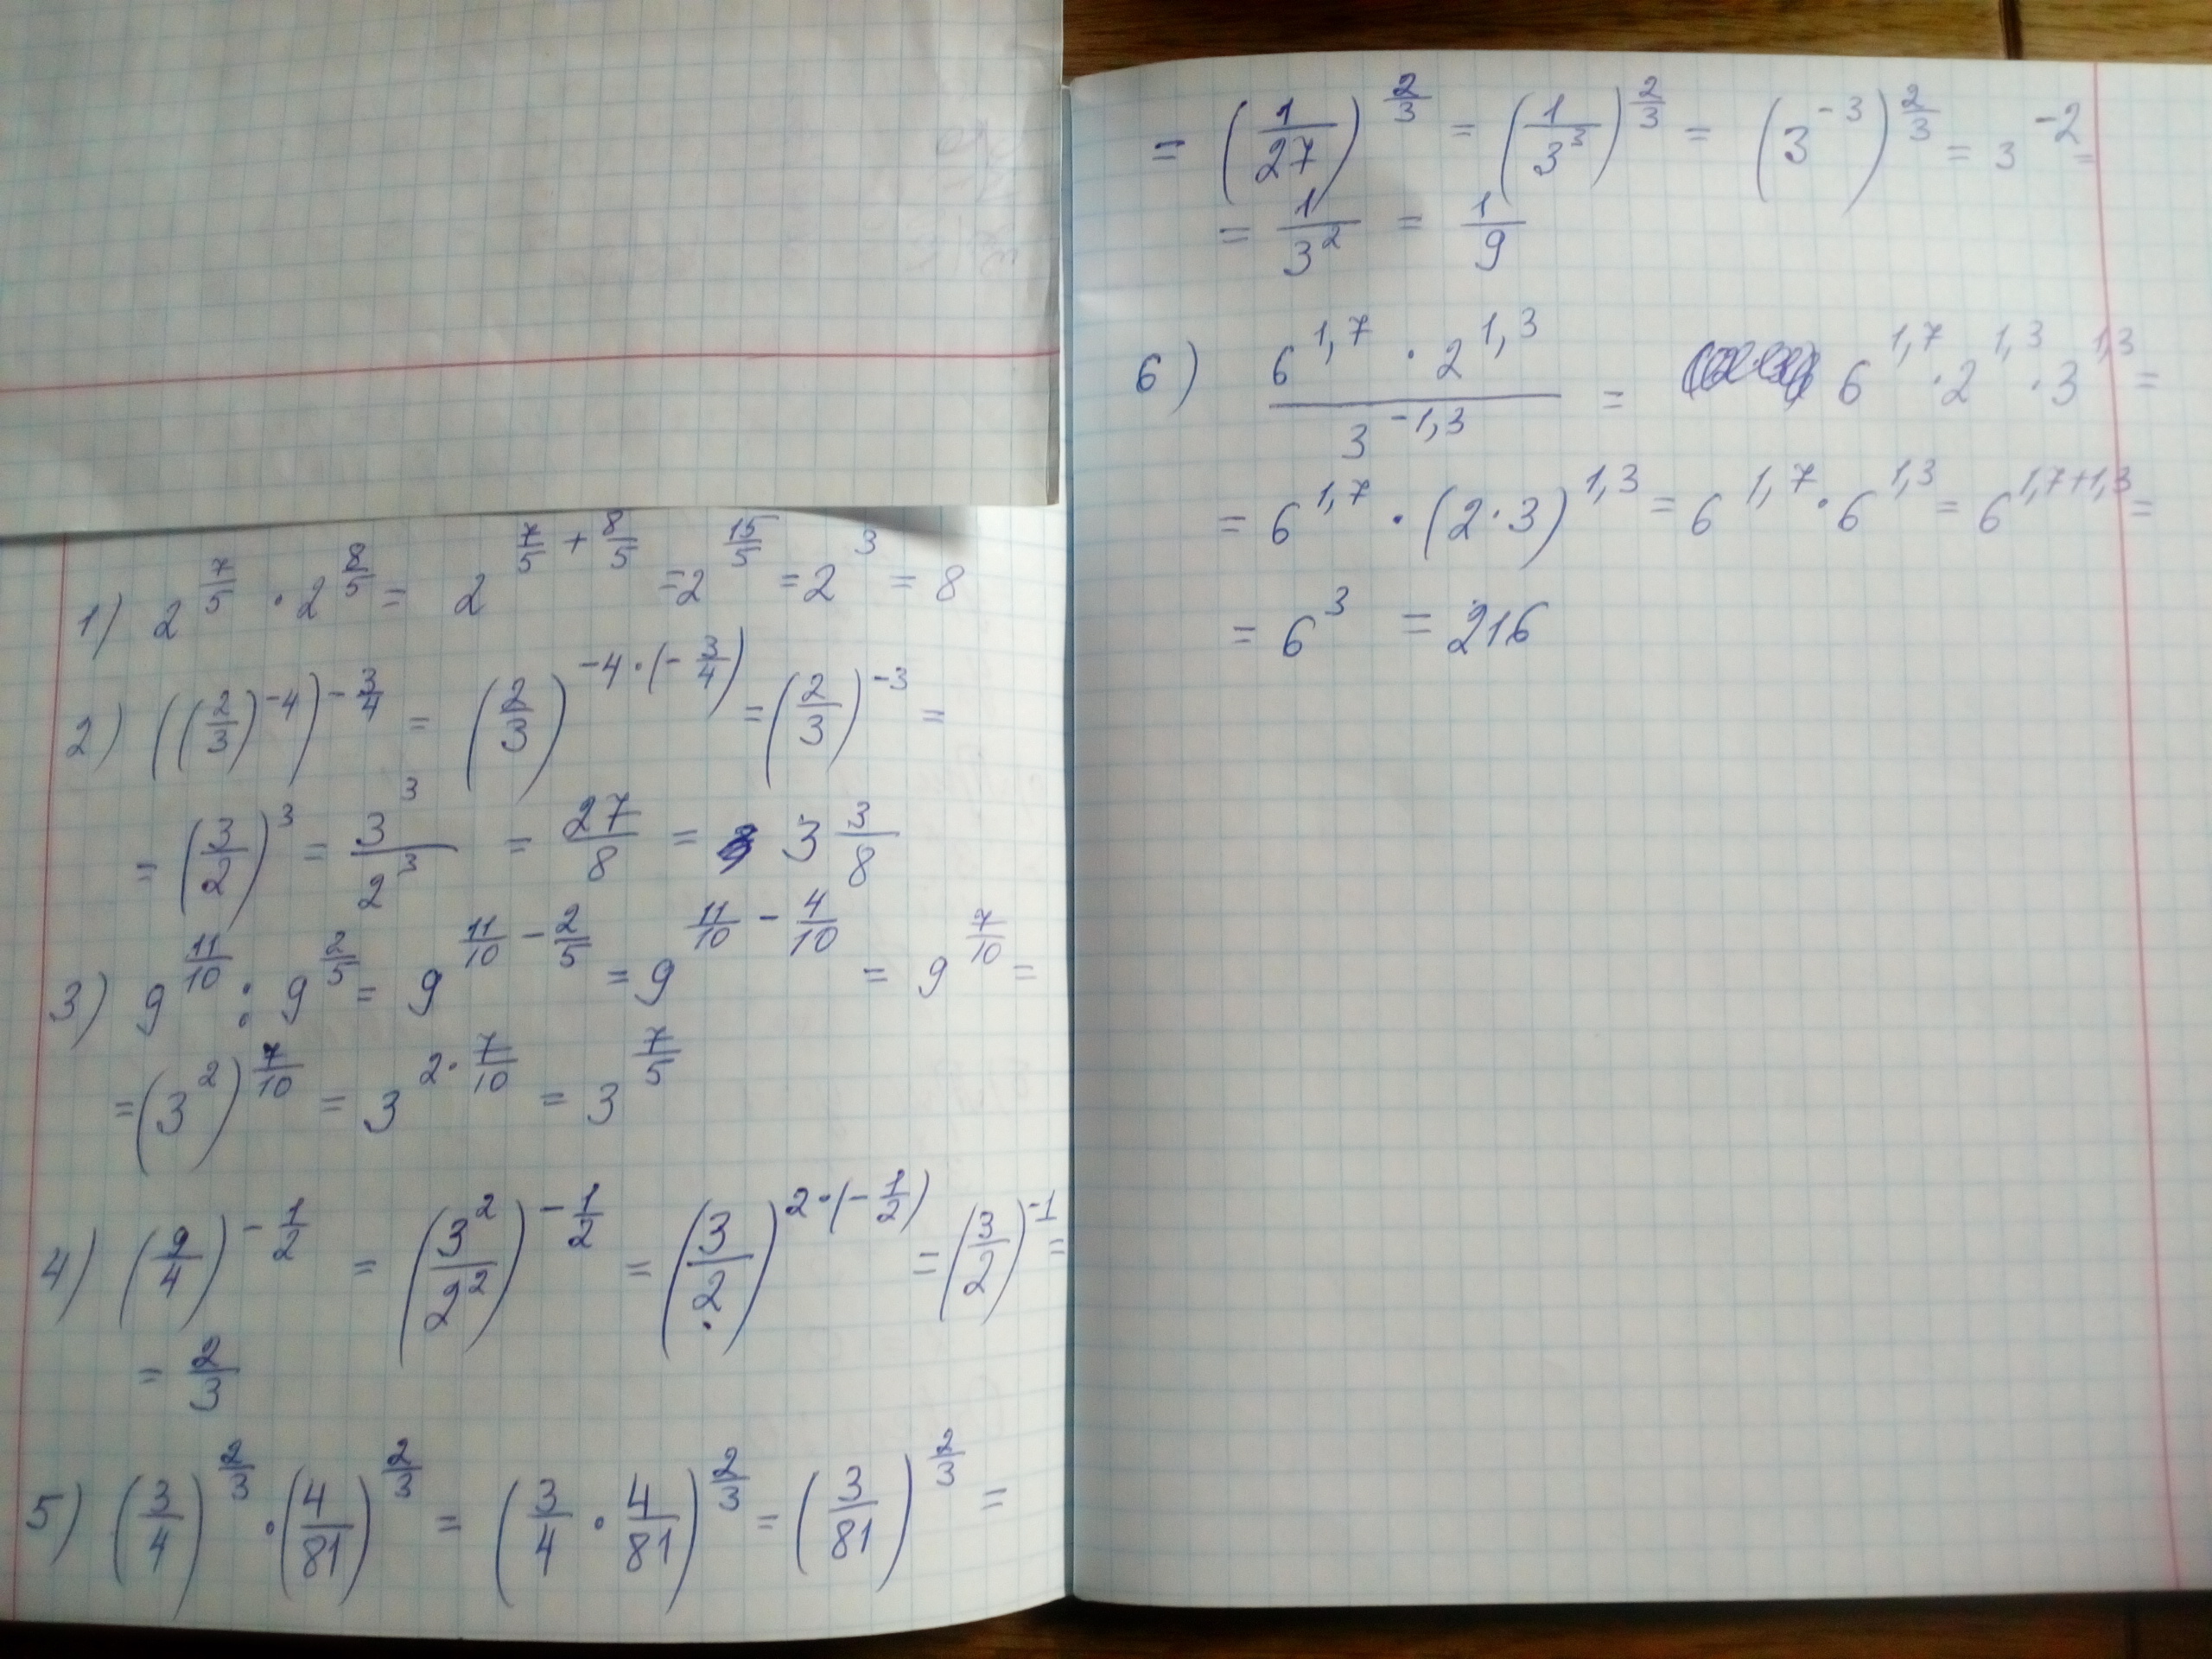 1) 2^(7/5) · 2^(8/5) = 2^(7/5 + 8/5) = 2^(15/5) = 2^3 = 8
2) ((2/3)^(-4))^(-3/4) = (2/3)^(-4·(-3/4)) = (2/3)^(-3) =
= (3/2)^3 = 3^3/2^3 = 27/8 = 3 3/8
3) 9^(11/10) : 9^(2/5) = 9^(11/10 - 2/5) = 9^(11/10 - 4/10) = 9^(7/10) =
= (3^2)^(7/10) = 3^(2·7/10) = 3^(7/5)
4) (9/4)^(-1/2) = (3^2/2^2)^(-1/2) = (3/2)^(2·(-1/2)) = (3/2)^(-1) =
= 2/3
5) (3/4)^(2/3) · (4/81)^(2/3) = (3/4 · 4/81)^(2/3) = (3/81)^(2/3) =
= (1/27)^(2/3) = (1/3^3)^(2/3) = (3^(-3))^(2/3) = 3^(-2) =
= 1/3^2 = 1/9
6) (6^(1,7) · 2^(1,3))/3^(-1,3) = 6^(1,7) · 2^(1,3) · 3^(1,3) =
= 6^(1,7) · (2·3)^(1,3) = 6^(1,7) · 6^(1,3) = 6^(1,7+1,3) =
= 6^3 = 216